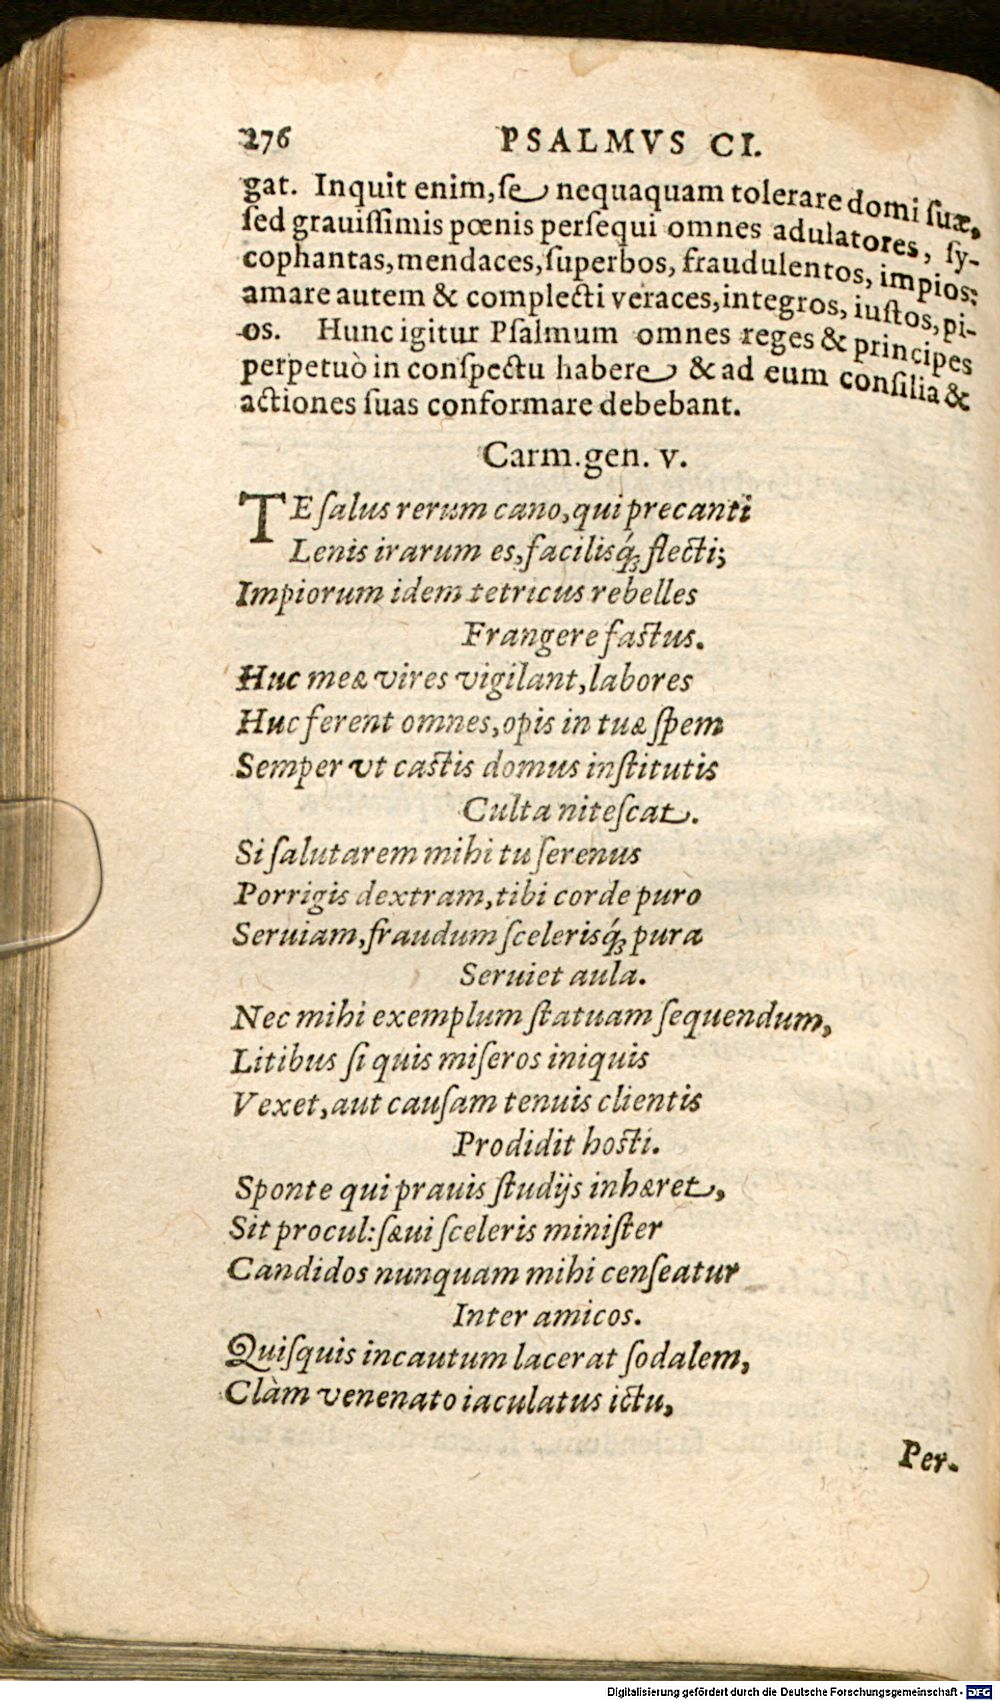 276 PSALMVS CI.
gat. Inquit enim, ſe nequaquam tolerare domi ſuæ,
ſed grauiſſimis pœnis perſequi omnes adulatores, ſy-
cophantas, mendaces, ſuperbos, fraudulentos, impios:
amare autem & complecti veraces, integros, iuſtos, pi-
os. Hunc igitur Pſalmum omnes reges & principes
perpetuò in conſpectu habere & ad eum conſilia &
actiones ſuas conformare debebant.
Carm. gen. v.
TE ſalus rerum cano, qui precanti
Lenis irarum es, facilisq́ꝫ flecti;
Impiorum idem tetricus rebelles
Frangere faſtus.
Huc meæ vires vigilant, labores
Huc ferent omnes, opis in tuæ ſpem
Semper vt caſtis domus inſtitutis
Culta niteſcat.
Si ſalutarem mihi tu ſerenus
Porrigis dextram, tibi corde puro
Seruiam, fraudum ſcelerisq́ꝫ pura
Seruiet aula.
Nec mihi exemplum ſtatuam ſequendum,
Litibus ſi quis miſeros iniquis
Vexet, aut cauſam tenuis clientis
Prodidit hoſti.
Sponte qui prauis ſtudijs inhæret,
Sit procul: ſæui ſceleris miniſter
Candidos nunquam mihi cenſeatur
Inter amicos.
Quiſquis incautum lacerat ſodalem,
Clàm venenato iaculatus ictu,
Per-
Digitalisierung gefördert durch die Deutsche Forschungsgemeinschaft - DFG